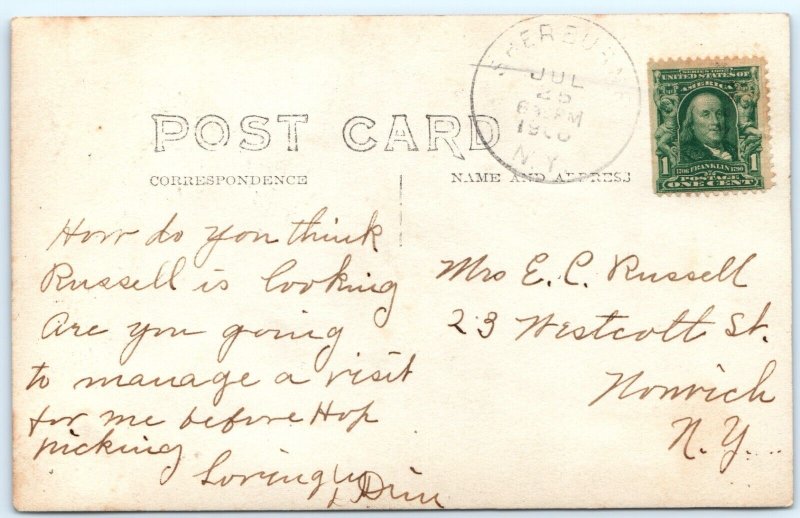 SHERBURNE
JUL
25
6 PM
N.Y.
SERIES 1902
UNITED STATES OF
AMERICA
1 1706 FRANKLIN 1790 1
POSTAGE
ONE CENT
POST CARD
CORRESPONDENCE
NAME AND ADDRESS
How do you think
Russell is looking
Are you going
to manage a visit
for me before Hop
picking
Lovingly
Mrs E. C. Russell
23 Westcott St.
Norwich
N.Y.